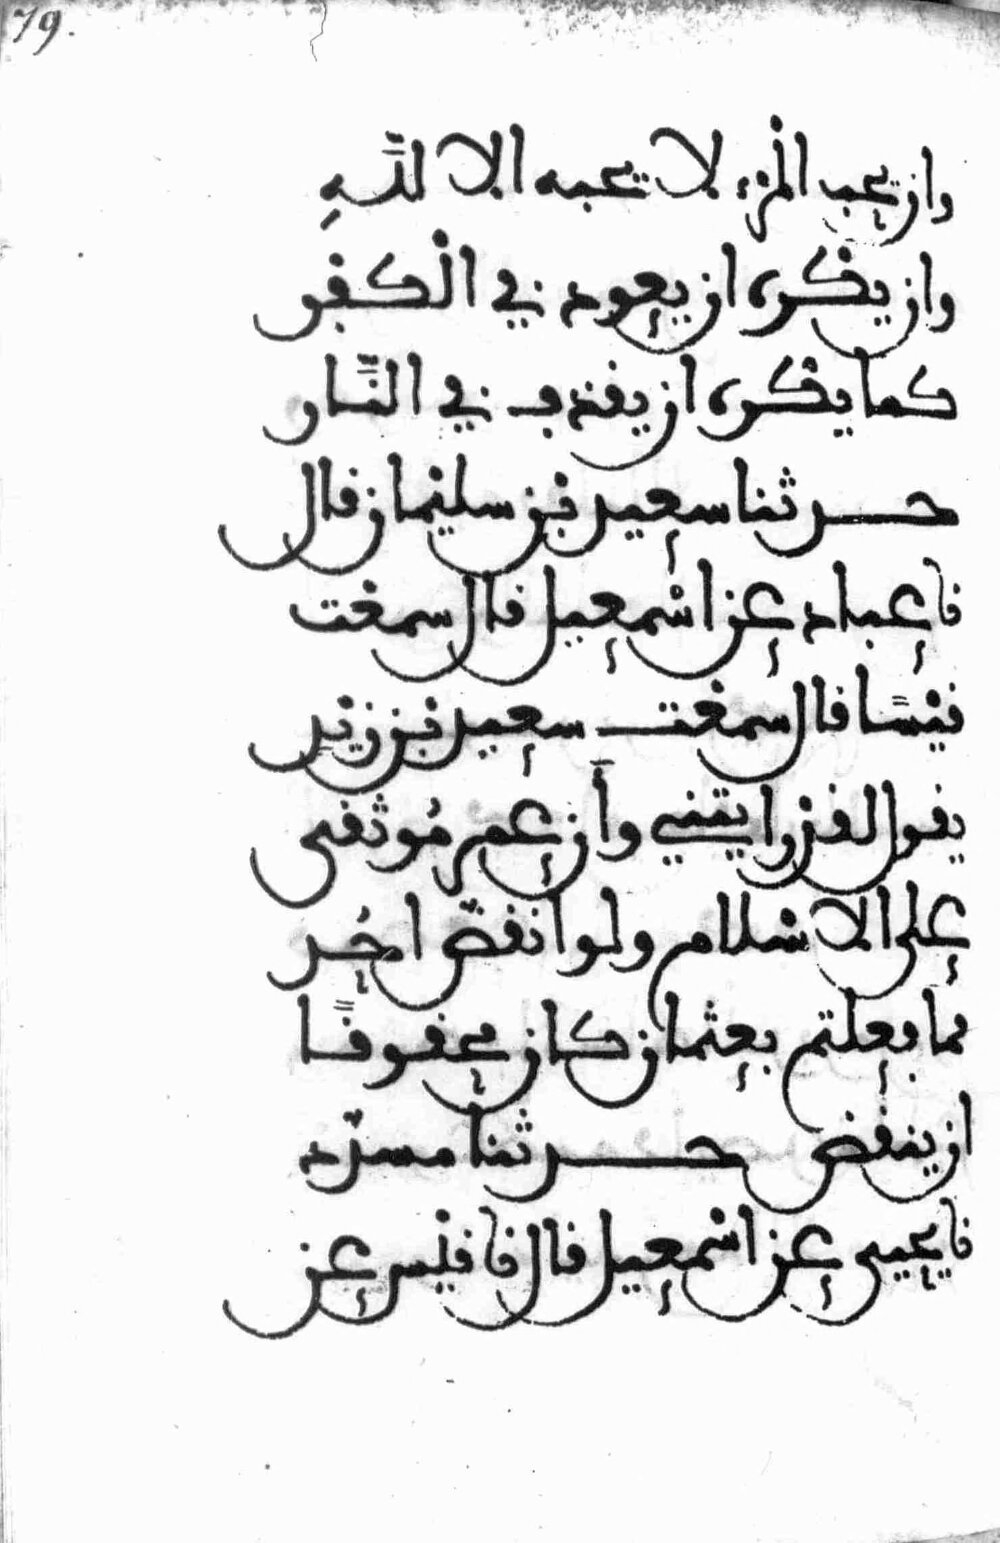 79.
وان يحب المرء لا يحبه الا لله
وان يكره ان يعود في الكفر
كما يكره ان يقذف في النار
حدثنا سعيد بن سليمان قال
نا عباد عن اسمعيل قال سمعت
قيسا قال سمعت سعيد بن زيد
يقول لقد رايتني وأن عمر موثقي
على الاسلام ولو انقض احد
مما فعلتم بعثمان كان محقوقا
ان ينقض حدثنا مسدد
نا يحيى عن اسمعيل قال نا قيس عن